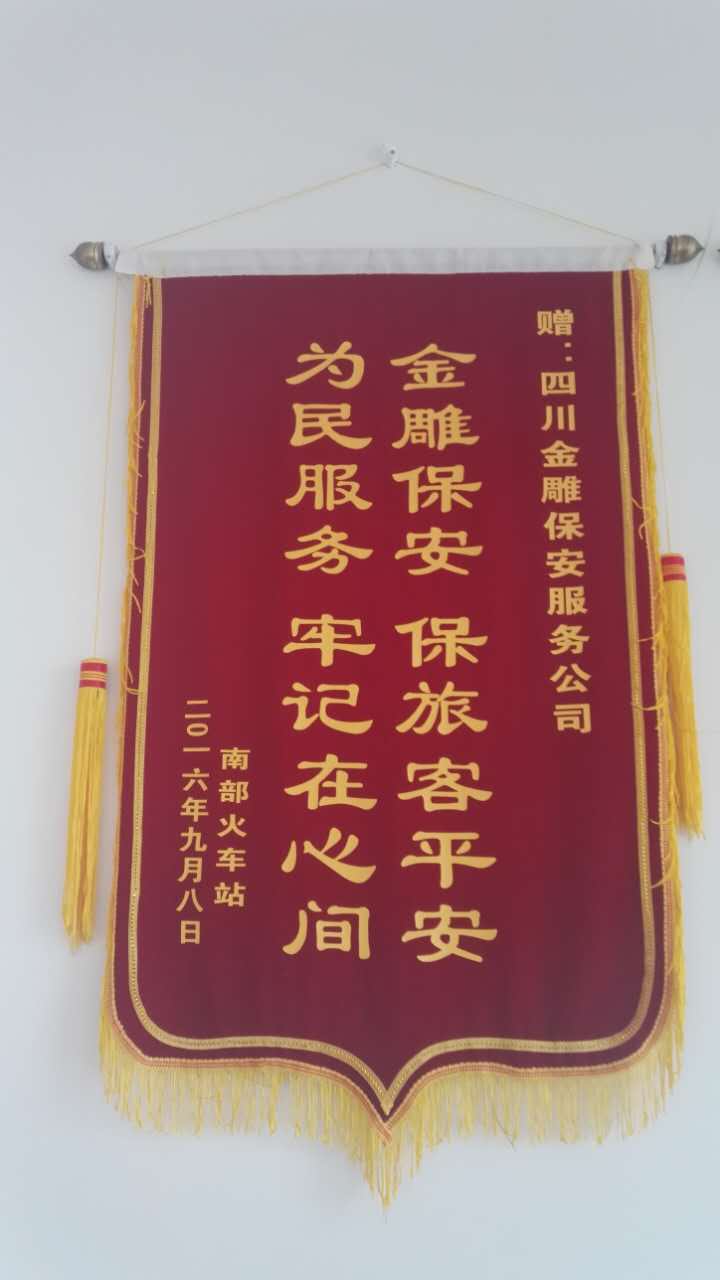 赠：四川金雕保安服务公司
金雕保安 保旅客平安
为民服务 牢记在心间
南部火车站
二〇一六年九月八日